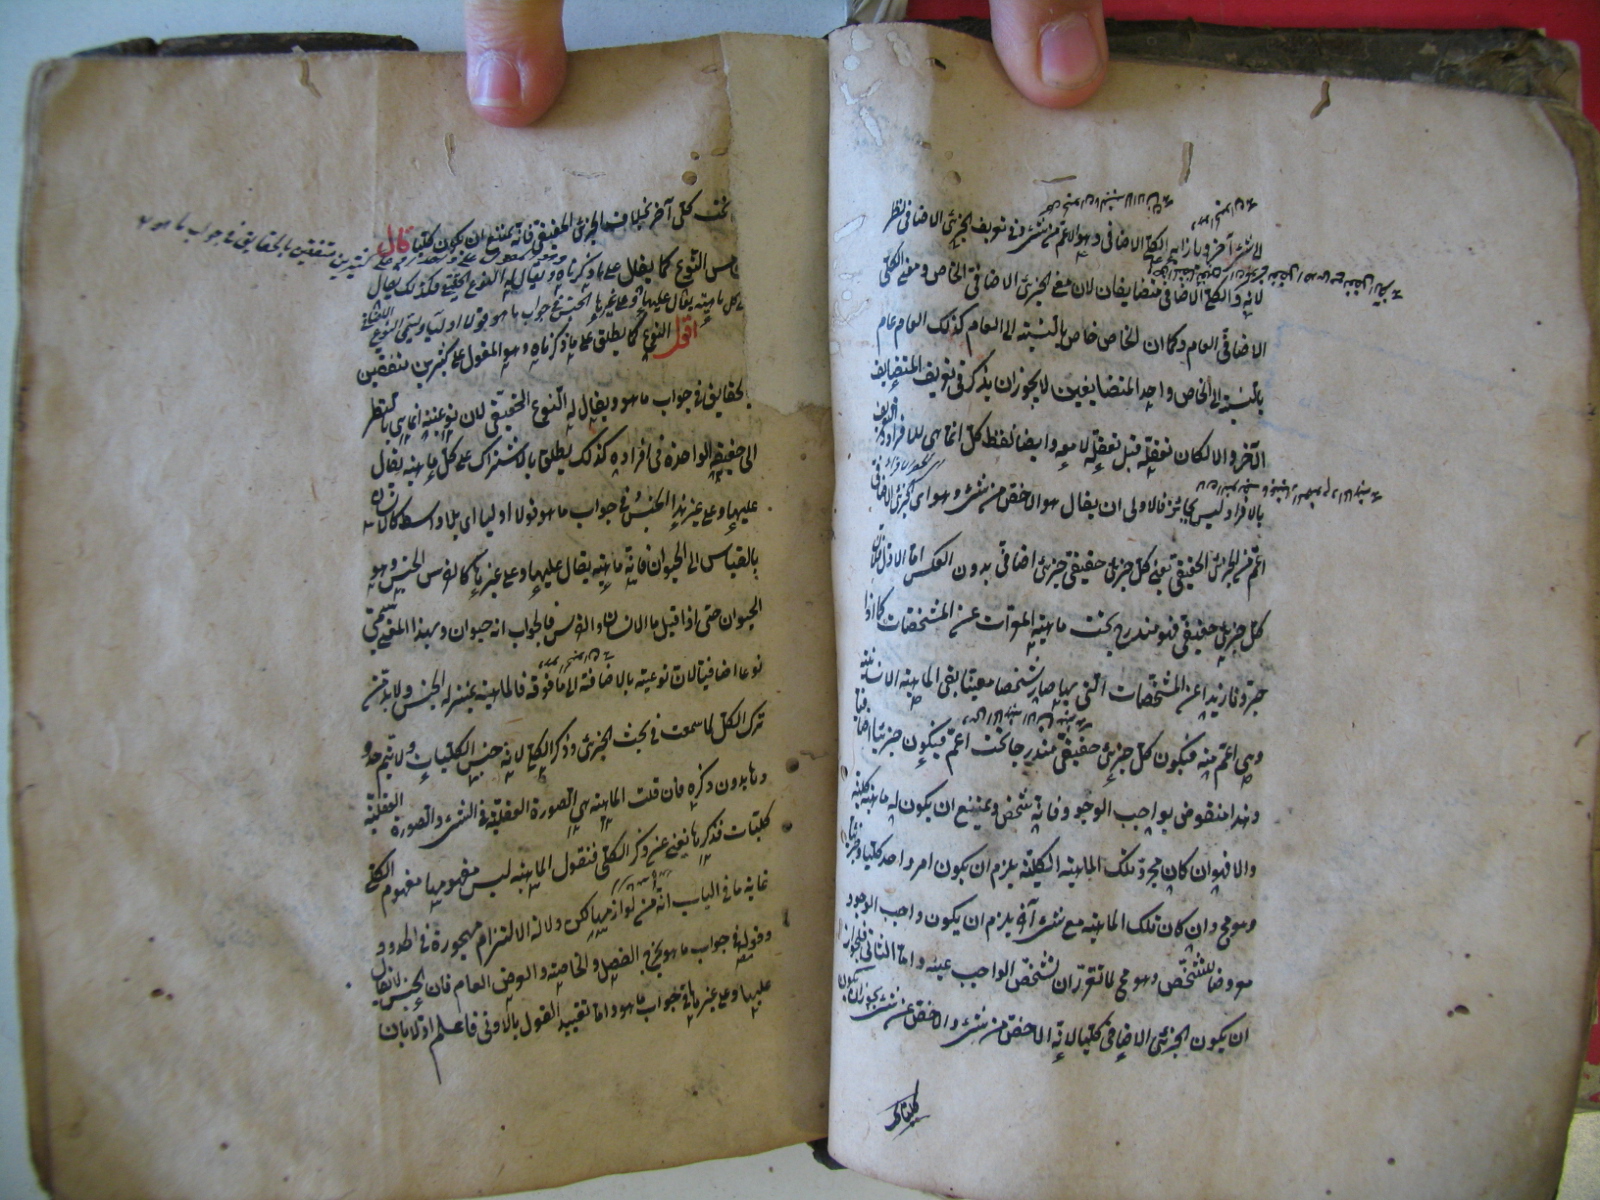 لشئ آخر وبازائه الكلي الاضافي وهو الاعم من شئ وفي تعريف الجزئي الاضافي نظر
لانه والكلي الاضافي متضايفان لان معنى الجزئي الاضافي الخاص ومعنى الكلي
الاضافي العام وكما ان الخاص خاص بالنسبة الى العام كذلك العام عام
بالنسبة الى الخاص واحد المتضايفين لا يجوز ان يذكر في تعريف المتضايف
الآخر والا لكان تعقله قبل تعقله لا معه وايضا لفظ كل انما هي للافراد والتعريف
بالافراد ليس بجائز فالاولى ان يقال هو الاخص من شئ وهو اى الجزئي الاضافي
اعم من الجزئي الحقيقي يعنى كل جزئي حقيقي جزئي اضافي بدون العكس اما الاول فلان
كل جزئي حقيقي فهو مندرج تحت ماهيته المعراة عن المشخصات كما اذا
جردنا زيدا عن المشخصات التي بها صار شخصا معينا بقى الماهية الانسانية
وهي اعم منه فيكون كل جزئي حقيقي مندرجا تحت اعم فيكون جزئيا اضافيا
وهذا منقوض بواجب الوجود فانه شخص ويمتنع ان يكون له ماهية كلية
والا فهو ان كان مجرد تلك الماهية الكلية يلزم ان يكون امر واحد كليا وجزئيا
وهو مح وان كان تلك الماهية مع شئ آخر يلزم ان يكون واجب الوجود
معروضا للتشخص وهو مح لما تقرر ان تشخص الواجب عينه واما الثاني فلجواز
ان يكون الجزئي الاضافي كليا لانه الاخص من شئ والاخص من شئ يجوز ان يكون
كليا تحت
تحت كلي آخر بخلاف الجزئي الحقيقي فانه يمتنع ان يكون كليا قال
الخامس النوع كما يقال على ما ذكرناه ويقال له النوع الحقيقي فكذلك يقال
على كل ماهية يقال عليها وعلى غيرها الجنس في جواب ما هو قولا اوليا ويسمى النوع الاضافي
اقول النوع كما يطلق على ما ذكرناه وهو المقول على كثيرين متفقين
بالحقايق في جواب ما هو ويقال له النوع الحقيقي لان نوعيته انما هي بالنظر
الى حقيقته الواحدة في افراده كذلك يطلق بالاشتراك على كل ماهية يقال
عليها وعلى غيرها الجنس في جواب ما هو قولا اوليا اى بلا واسطة كالانسان
بالقياس الى الحيوان فانه ماهية يقال عليها وعلى غيرها كالفرس الجنس وهو
الحيوان حتى اذا قيل ما الانسان والفرس فالجواب انه حيوان وبهذا المعنى يسمى
نوعا اضافيا لان نوعيته بالاضافة الى ما فوقه فالماهية بمنزلة الجنس ولا بد من
ترك الكل لما سمعت في بحث الجزئي وذكر الكلي لانه جنس الكليات ولا يتم حدو
دها بدون ذكره فان قلت الماهية هي الصورة العقلية في الشئ والصورة العقلية
كليات فذكرها يغني عن ذكر الكلي فنقول الماهية ليس مفهومها مفهوم الكلي
غاية ما في الباب انه من لوازمها لكن دلالة الالتزام مهجورة في الحدود
وقوله في جواب ما هو يخرج الفصل والخاصة والعرض العام فان الجنس لا يقال
عليها وعلى غيرها في جواب ما هو واما تقييد القول بالاولى فاعلم اولا بان
كثيرين متفقين بالحقايق في جواب ما هو